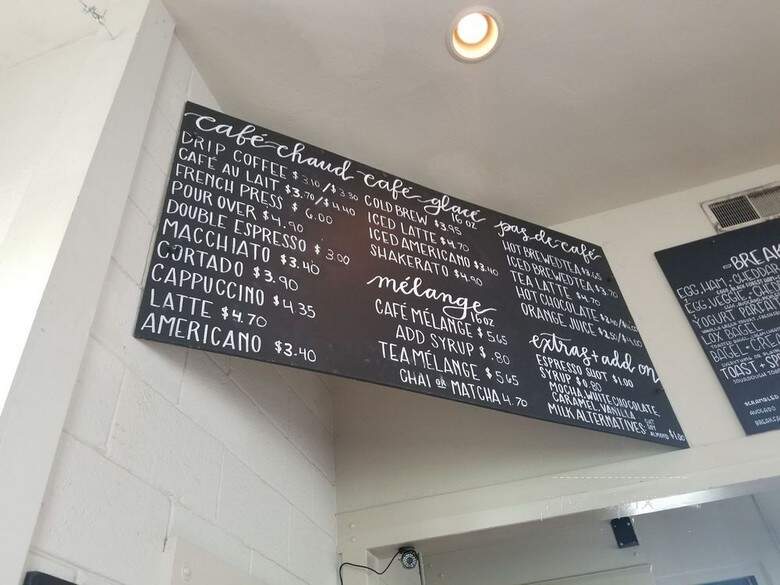 café chaud
DRIP COFFEE $3.10/$3.30
CAFÉ AU LAIT $3.70/$4.40
FRENCH PRESS $6.00
POUR OVER $4.90
DOUBLE ESPRESSO $3.00
MACCHIATO $3.40
CORTADO $3.90
CAPPUCCINO $4.35
LATTE $4.70
AMERICANO $3.40
café glacé
16 OZ
COLD BREW $3.95
ICED LATTE $4.70
ICED AMERICANO $3.40
SHAKERATO $4.90
mélange
16oz
CAFÉ MÉLANGE $5.65
ADD SYRUP $.80
TEA MÉLANGE $5.65
CHAI or MATCHA 4.70
pas de café
HOT BREWED TEA
ICED BREWED TEA $3.70
TEA LATTE $4.70
HOT CHOCOLATE
ORANGE JUICE
extras + add on
ESPRESSO SHOT $1.00
SYRUP $0.80
MOCHA, WHITE CHOCOLATE,
CARAMEL, VANILLA
MILK ALTERNATIVES OAT SOY ALMOND $1.00
BREAK
EGG, HAM, CHEDDAR
EGG, VEGGIE,
YOGURT
LOX BAGEL
BAGEL + CREA
TOAST + S
SCRAMBLED
AVOCADO